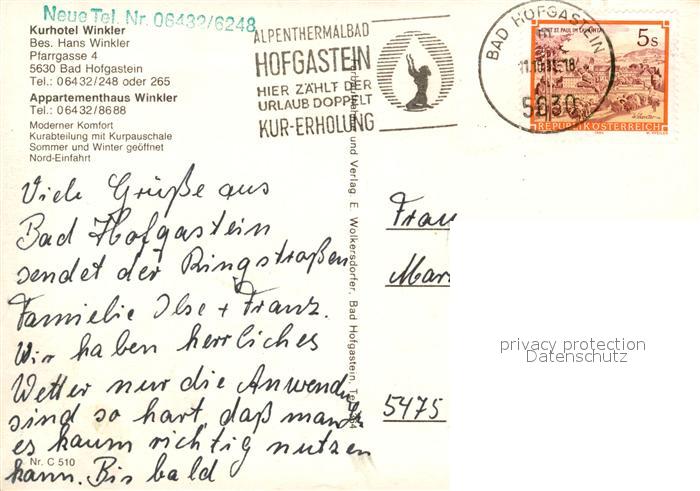 Neue Tel. Nr. 06432/6248
Kurhotel Winkler
Bes. Hans Winkler
Pfarrgasse 4
5630 Bad Hofgastein
Tel.: 06432/248 oder 265
Appartementhaus Winkler
Tel.: 06432/8688
Moderner Komfort
Kurabteilung mit Kurpauschale
Sommer und Winter geöffnet
Nord-Einfahrt
ALPENTHERMALBAD
HOFGASTEIN
HIER ZÄHLT DER
URLAUB DOPPELT
KUR-ERHOLUNG
BAD HOFGASTEIN
5630
STIFT ST. PAUL IM LAVANTTAL
5s
REPUBLIK ÖSTERREICH
Viele Grüße aus
Bad Hofgastein
sendet der Ringstraßen
Familie Ilse + Franz.
Wir haben herrliches
Wetter nur die Anwendg
sind so hart, daß man
es kaum richtig nutzen
kann. Bis bald
Nr. C 510
und Verlag: E. Wolkersdorfer, Bad Hofgastein,
Frau
Mar
5475
privacy protection
Datenschutz